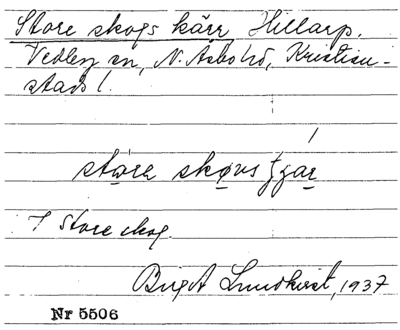 Store skogs kärr, Hillarp.
Vedby sn, N. Åsbo hd, Kristian-
stads l.
I Store skog.
Birgit Lundkvist, 1937
Nr 5506